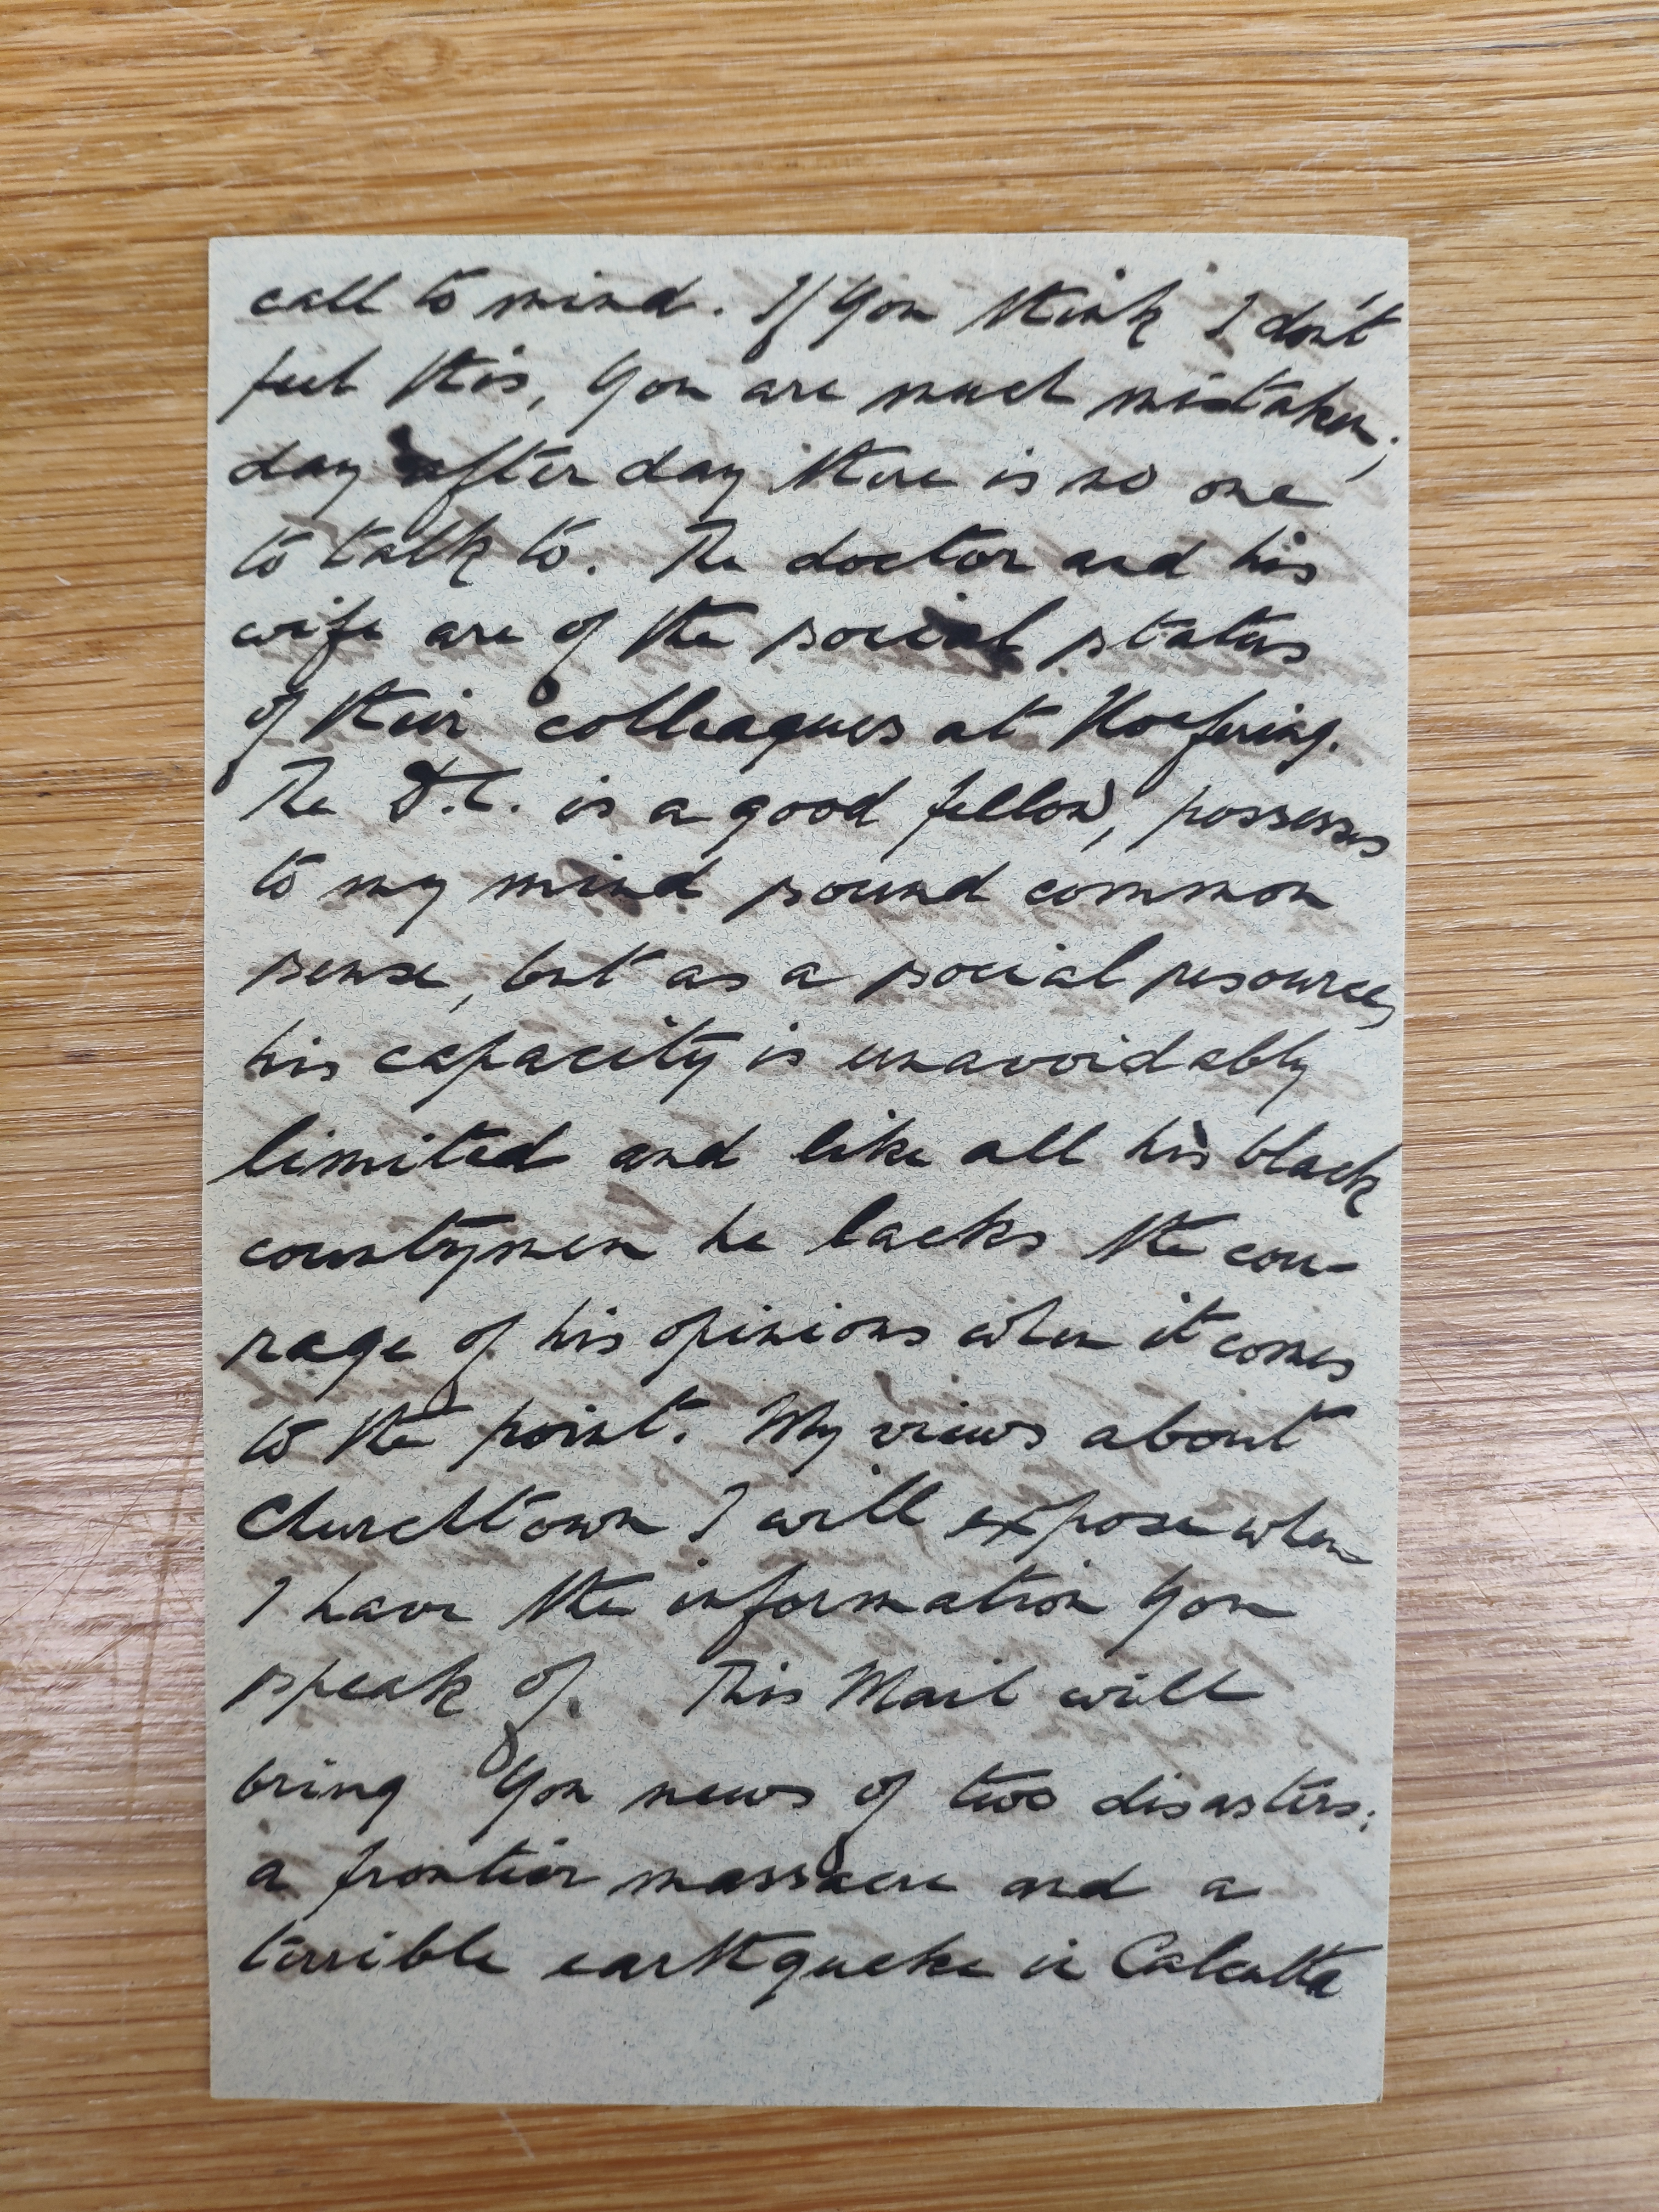 call to mind. If you think I don't
feel this, you are much mistaken;
day after day there is no one
to talk to. The doctor and his
wife are of the social status
of their colleagues at
The D.C. is a good fellow, possesses
to my mind sound common
sense, but as a social resource,
his capacity is unavoidably
limited and like all his black
countrymen he lacks the cou-
rage of his opinions when it comes
to the point. My views about
Churchtown I will expose when
I have the information you
speak of. This Mail will
bring you news of two disasters:
a frontier massacre and a
terrible earthquake in Calcutta